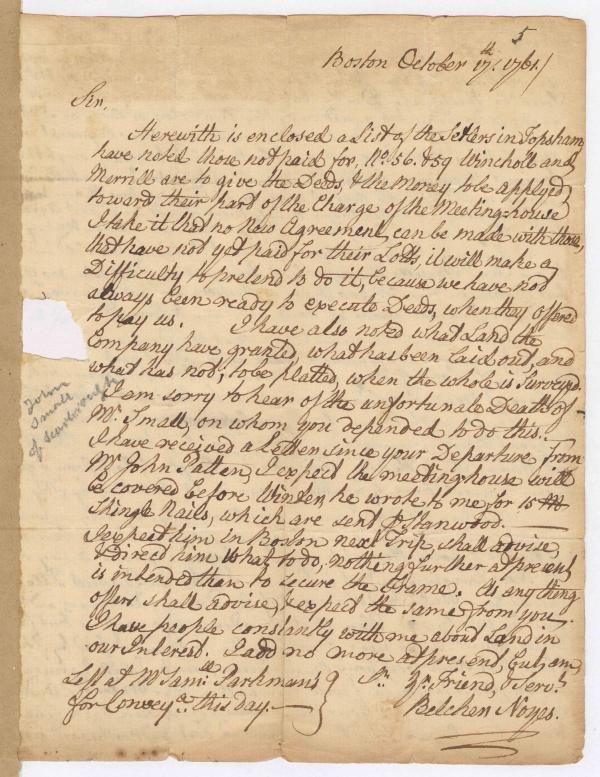 5
Boston October 17th. 1761/
Sir,
Herewith is enclosed a List of the Setlers in Topsham,
have noted those not paid for, No. 56. & 59 Wincholl and
Merrill are to give the Deeds, & the Money to be applyed
toward their part of the Charge of the Meeting-house
I take it that no New Agreement can be made with those,
that have not yet paid for their Lotts, it will make a
Difficulty to pretend to do it, because we have not
always been ready to execute Deeds, when they offered
to pay us. I have also noted what Land the
Company have granted, what has been laid out, and
what has not, to be platted, when the whole is Survey'd.
I am sorry to hear of the unfortunate Death of
Mr. Small, on whom you depended to do this.
I have received a Letter since your Departure from
Mr John Patten, I expect the meeting house will
be covered before Winter, he wrote to me for 15 M
Shingle nails, which are sent Stanwood.
I expect him in Boston next Trip, shall advise,
& direct him what to do, nothing further at present
is intended then to secure the Frame. As any thing
offers shall advise, & expect the same from you.
I have people constantly with me about Land in
our Interest. I add no more at present, but am,
Left at Mr Saml. Parkman's } Sr. Yr. Friend, & Servt.
for Convey.ce this day. Belcher Noyes.
John
Small
of Scarborough